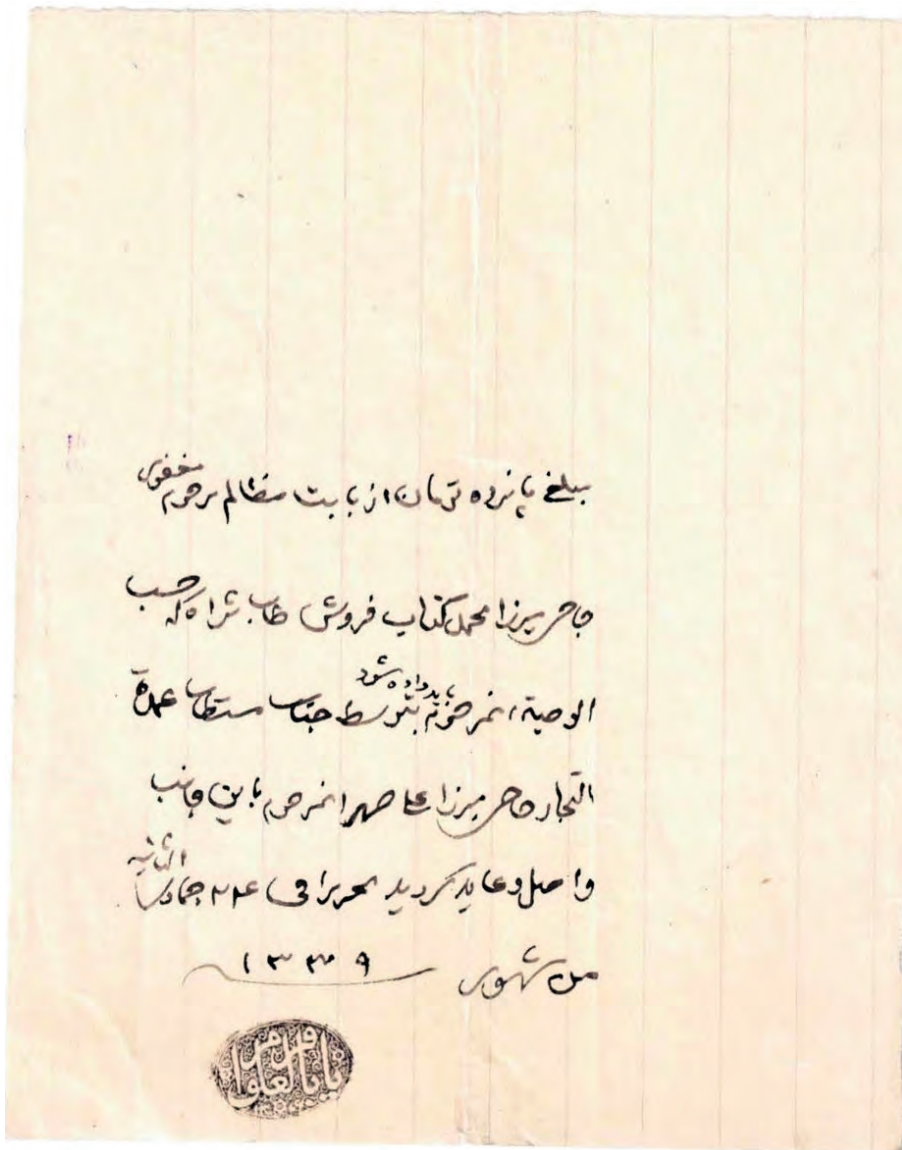 مبلغ پانزده تومان از بابت مظالم مرحوم مغفور
حاجی میرزا محمد کتاب فروش طاب ثراه که حسب
الوصیة آنمرحوم باید داده شود بتوسط جناب مستطاب عمدة
التجار حاجی میرزا علی صهر آنمرحوم باین جانب
واصل و عاید گردید تحریرا فی ۲۴ جمادی الثانیه
من شهور ۱۳۳۹